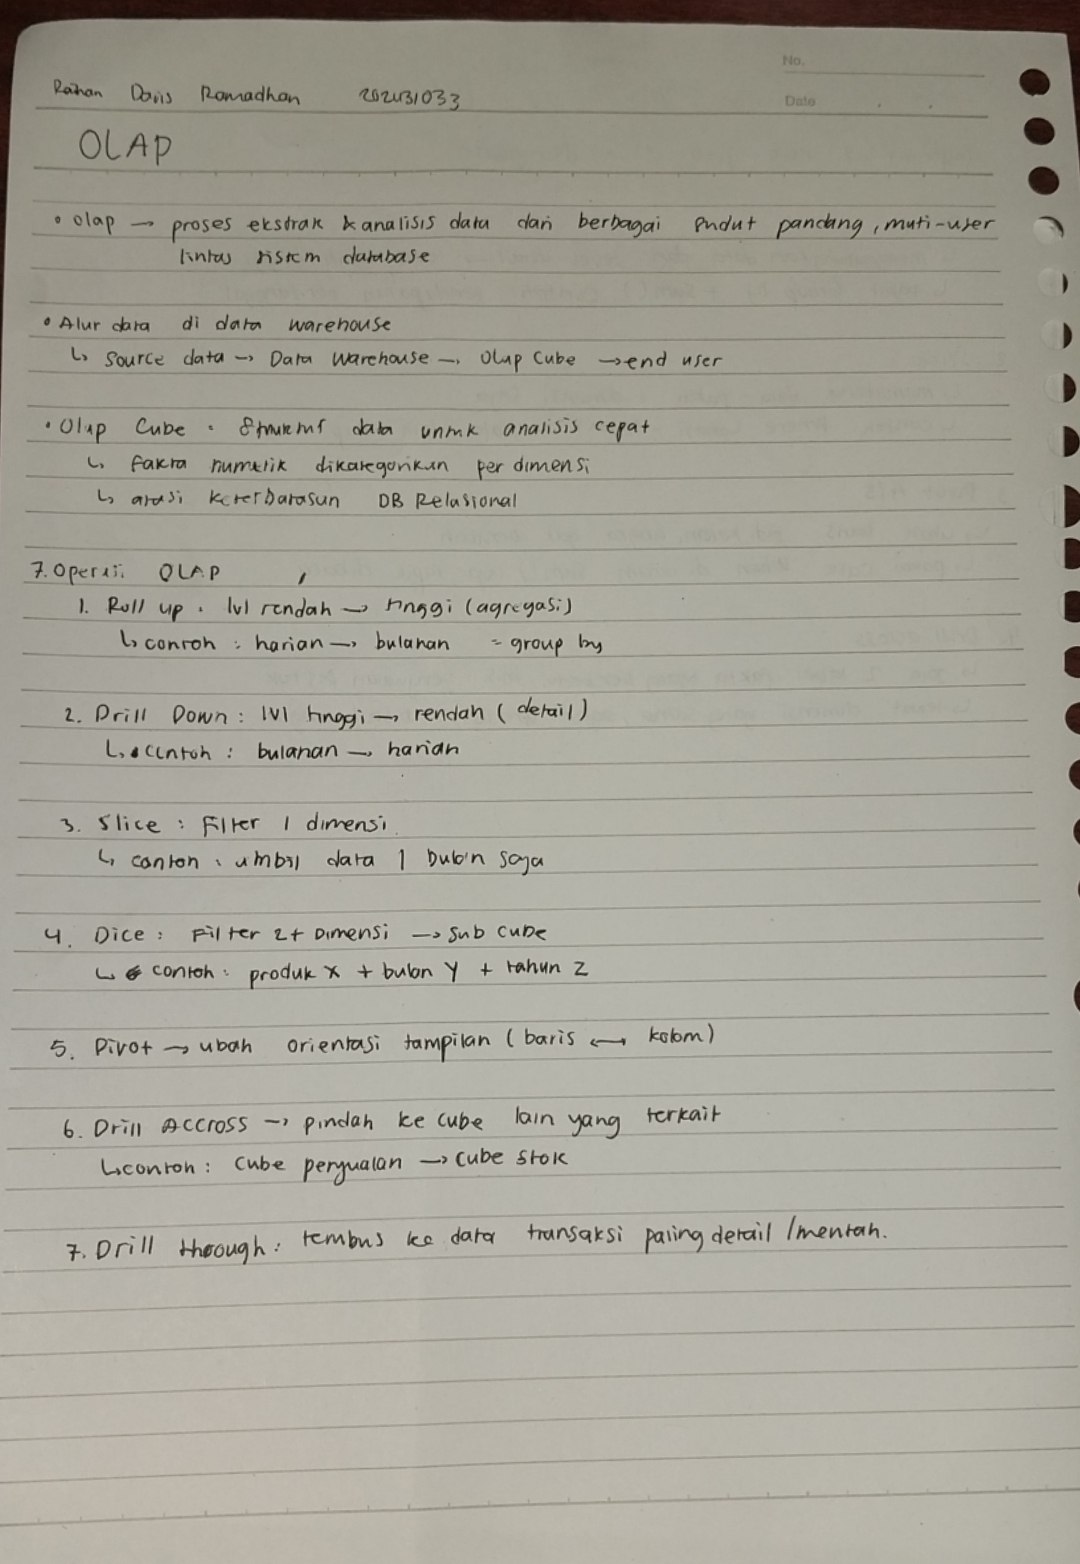 No.
Raihan Daris Ramadhan 202131033
Date
OLAP
• Olap → proses ekstrak & analisis data dari berbagai sudut pandang, muti-user
lintas sistem database
• Alur data di data warehouse
↳ Source data → Data Warehouse → Olap Cube → end user
• Olap Cube : Struktur data untuk analisis cepat
↳ fakta numerik dikategorikan per dimensi
↳ atasi keterbatasan DB Relasional
7. Operasi OLAP
1. Roll up : lvl rendah → tinggi (agregasi)
↳ contoh : harian → bulanan = group by
2. Drill Down : lvl tinggi → rendah (detail)
↳ contoh : bulanan → harian
3. Slice : Filter 1 dimensi
↳ contoh : ambil data 1 bulan saja
4. Dice : Filter 2+ Dimensi → Sub cube
↳ contoh : produk X + bulan Y + tahun Z
5. Pivot → ubah orientasi tampilan (baris ↔ kolom)
6. Drill Accross → pindah ke cube lain yang terkait
↳ contoh : Cube penjualan → Cube Stok
7. Drill through : tembus ke data transaksi paling detail / mentah.